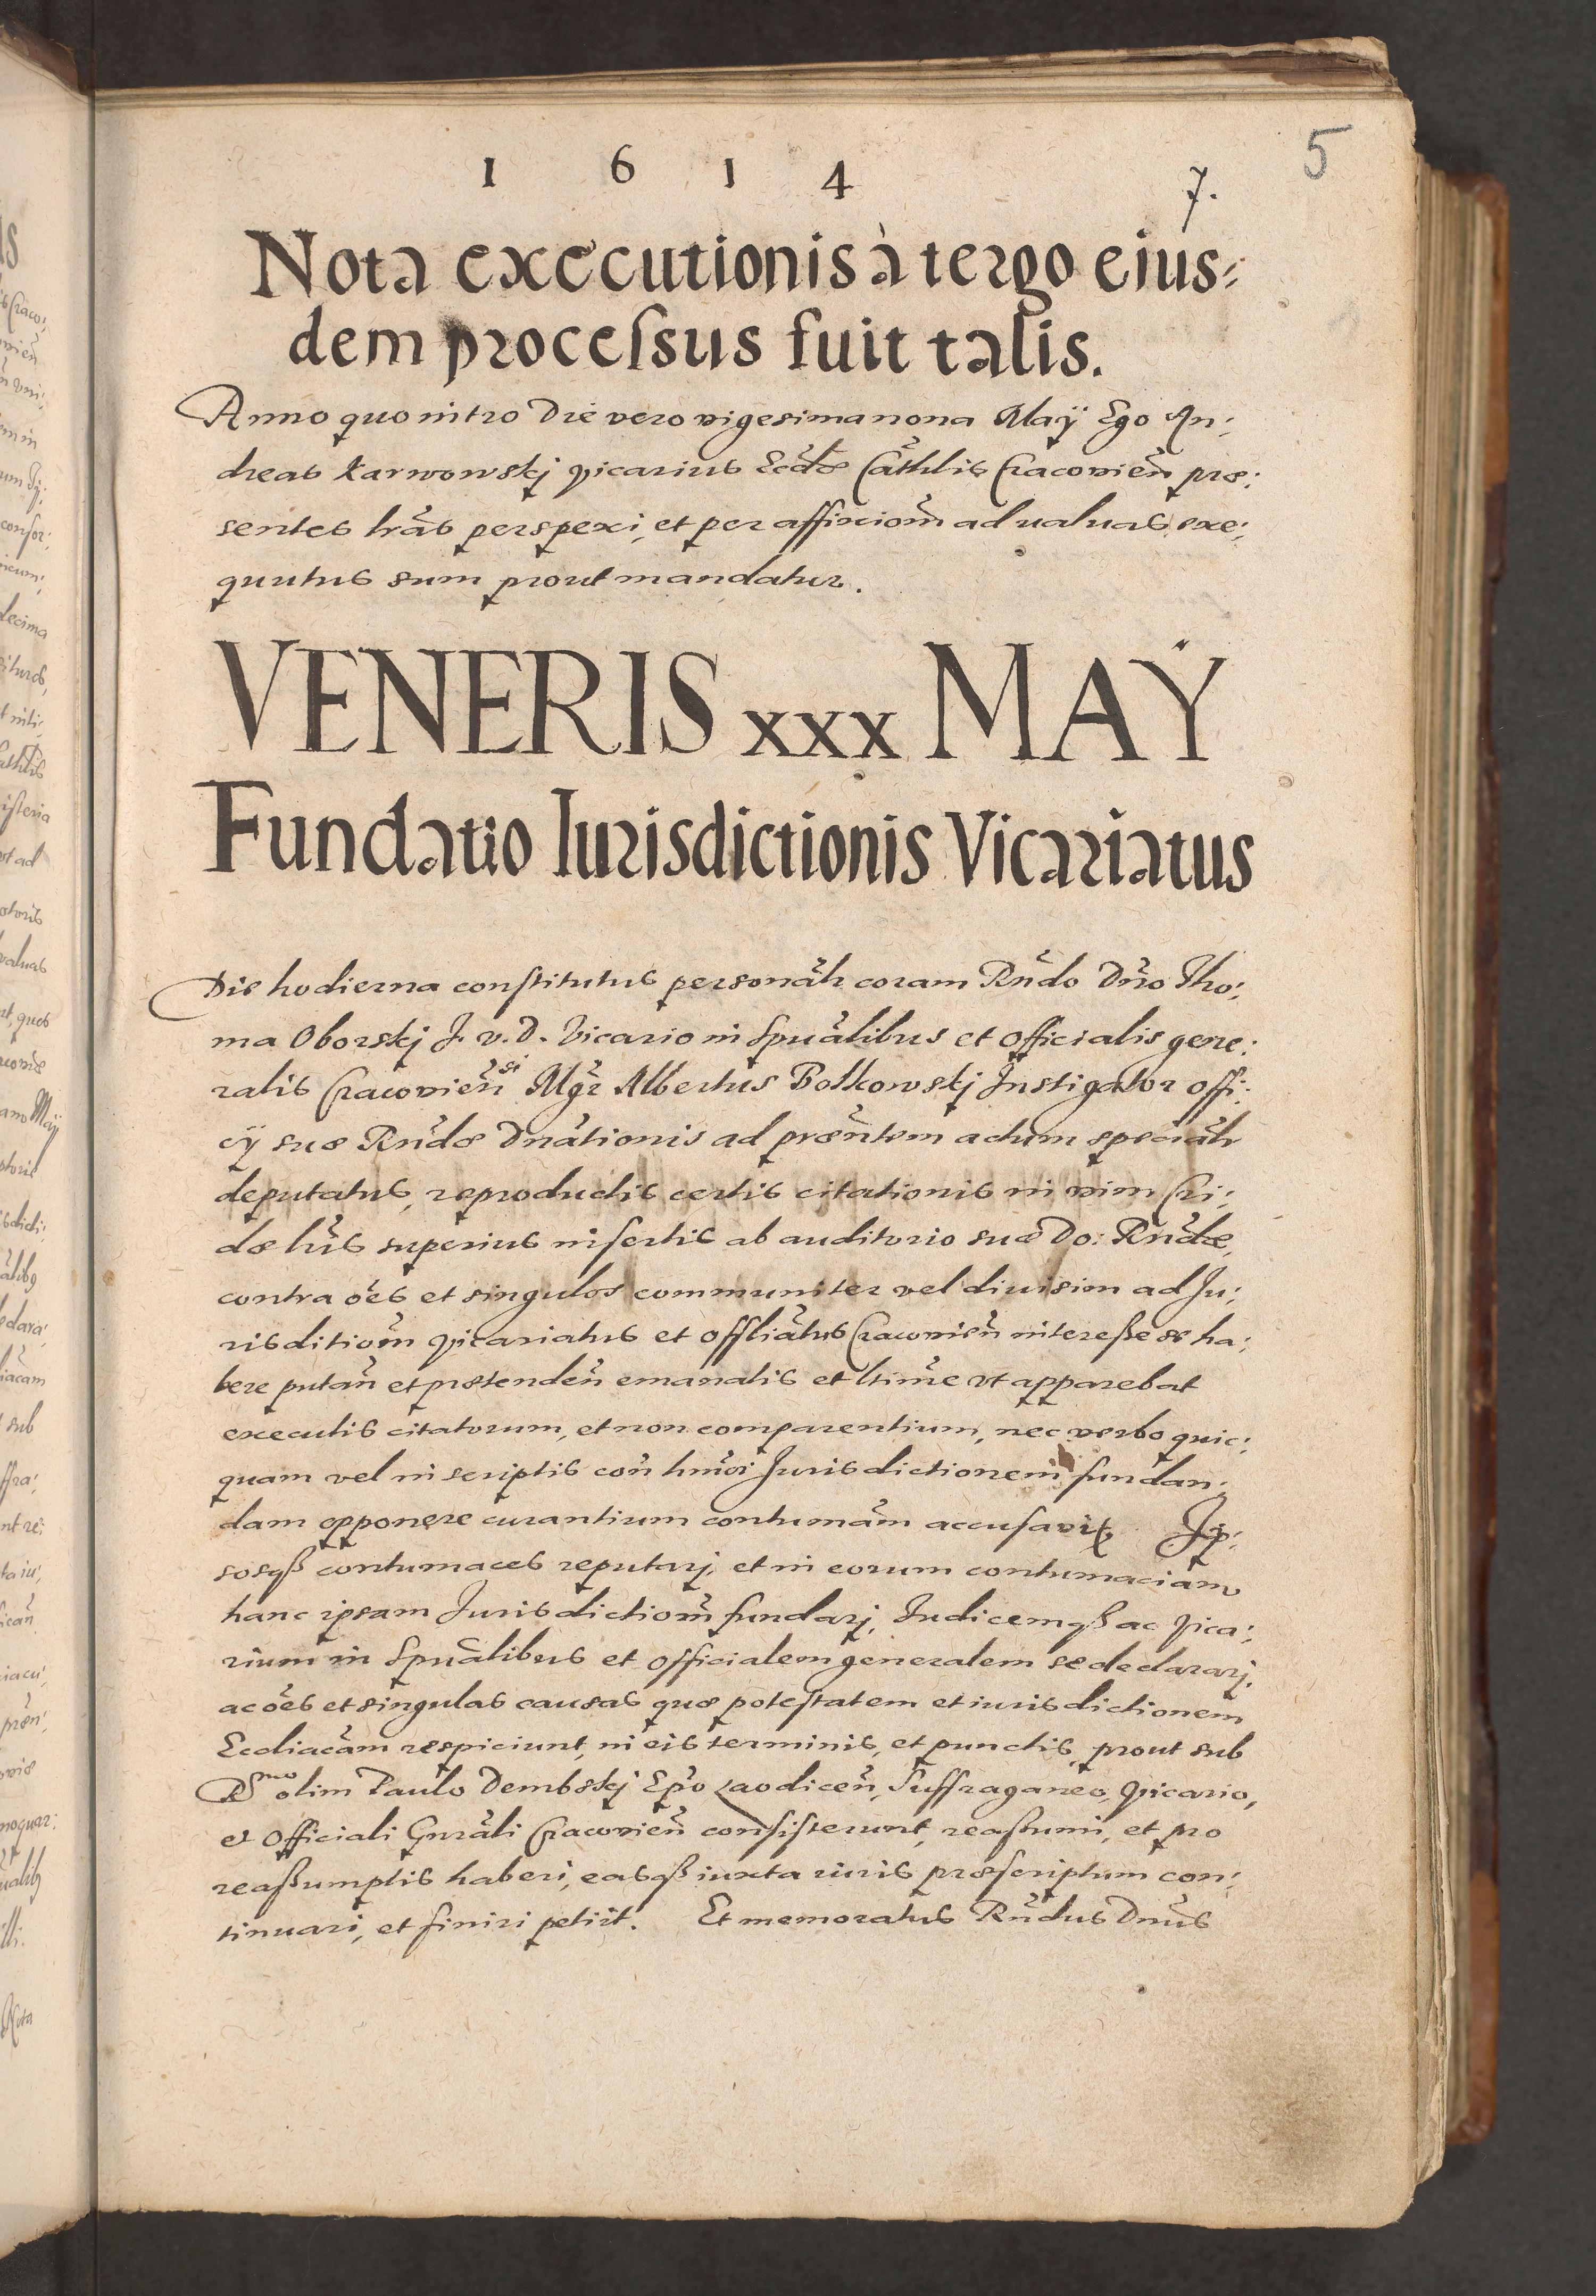 5
1 6 1 4
7.
Nota executionis à tergo eius:
dem processus fuit talis.
Anno quo intro Die vero vigesima nona Maÿ Ego An:
dreas Karwowskj vicarius Eccl̃æ Cath̃lis Cracovien̄ præ:
sentes lr̃as perspexi, et per affixiom̃ ad ualuas exe:
quutus sum prout mandatur.
VENERIS xxx MAŸ
Fundatio Iurisdictionis Vicariatus
Die hodierna constitutus personal̃r coram Rñdo Dño Tho:
ma Oborskj J. v. D. Vicario in Spũalibus et Officialis gene:
ralis Cracovieñsi Mgr̃ Albertus Bolkowskj Instigator offi:
cÿ suæ Rñdæ Dnãtionis ad præñtem actum speciãlr
deputatus, reproductis certis citationis in vim Cri:
dæ lrĩs superius insertis ab auditorio suæ Do: Rñdæ,
contra oẽs et singulos communiter vel diuisim ad Ju:
risditiom̃ vicariatus et Offliãtus Cracovieñ interesse se ha:
bere putañ et prætendeñ emanatis et ltimẽ vt apparebat
executis citatorum, et non comparentium, nec verbo quic:
quam vel in scriptis coñ hmõi Jurisdictionem fundan:
dam opponere curantium contumãm accusavit, Jp:
sosqß contumaces reputarj, et in eorum contumaciam
hanc ipsam Jurisdictiom̃ fundarj, Judicemqß ac vica:
rium in Spũalibus et Officialem generalem se declararj,
ac oẽs et singulas causas quæ potestatem et iurisdictionem
Eccliacãm respiciunt, in eis terminis, et punctis, prout sub
Rmo olim Paulo Dembskj Ep̃o Laodiceñ, Suffraganeo, vicario,
et Officiali Gnrãli Cracovieñ consisterunt, reassumi, et pro
reassumptis haberi, easqß iuxta iuris præscriptum con:
tinuari, et finiri petiit. Et memoratus Rñdus Dñus